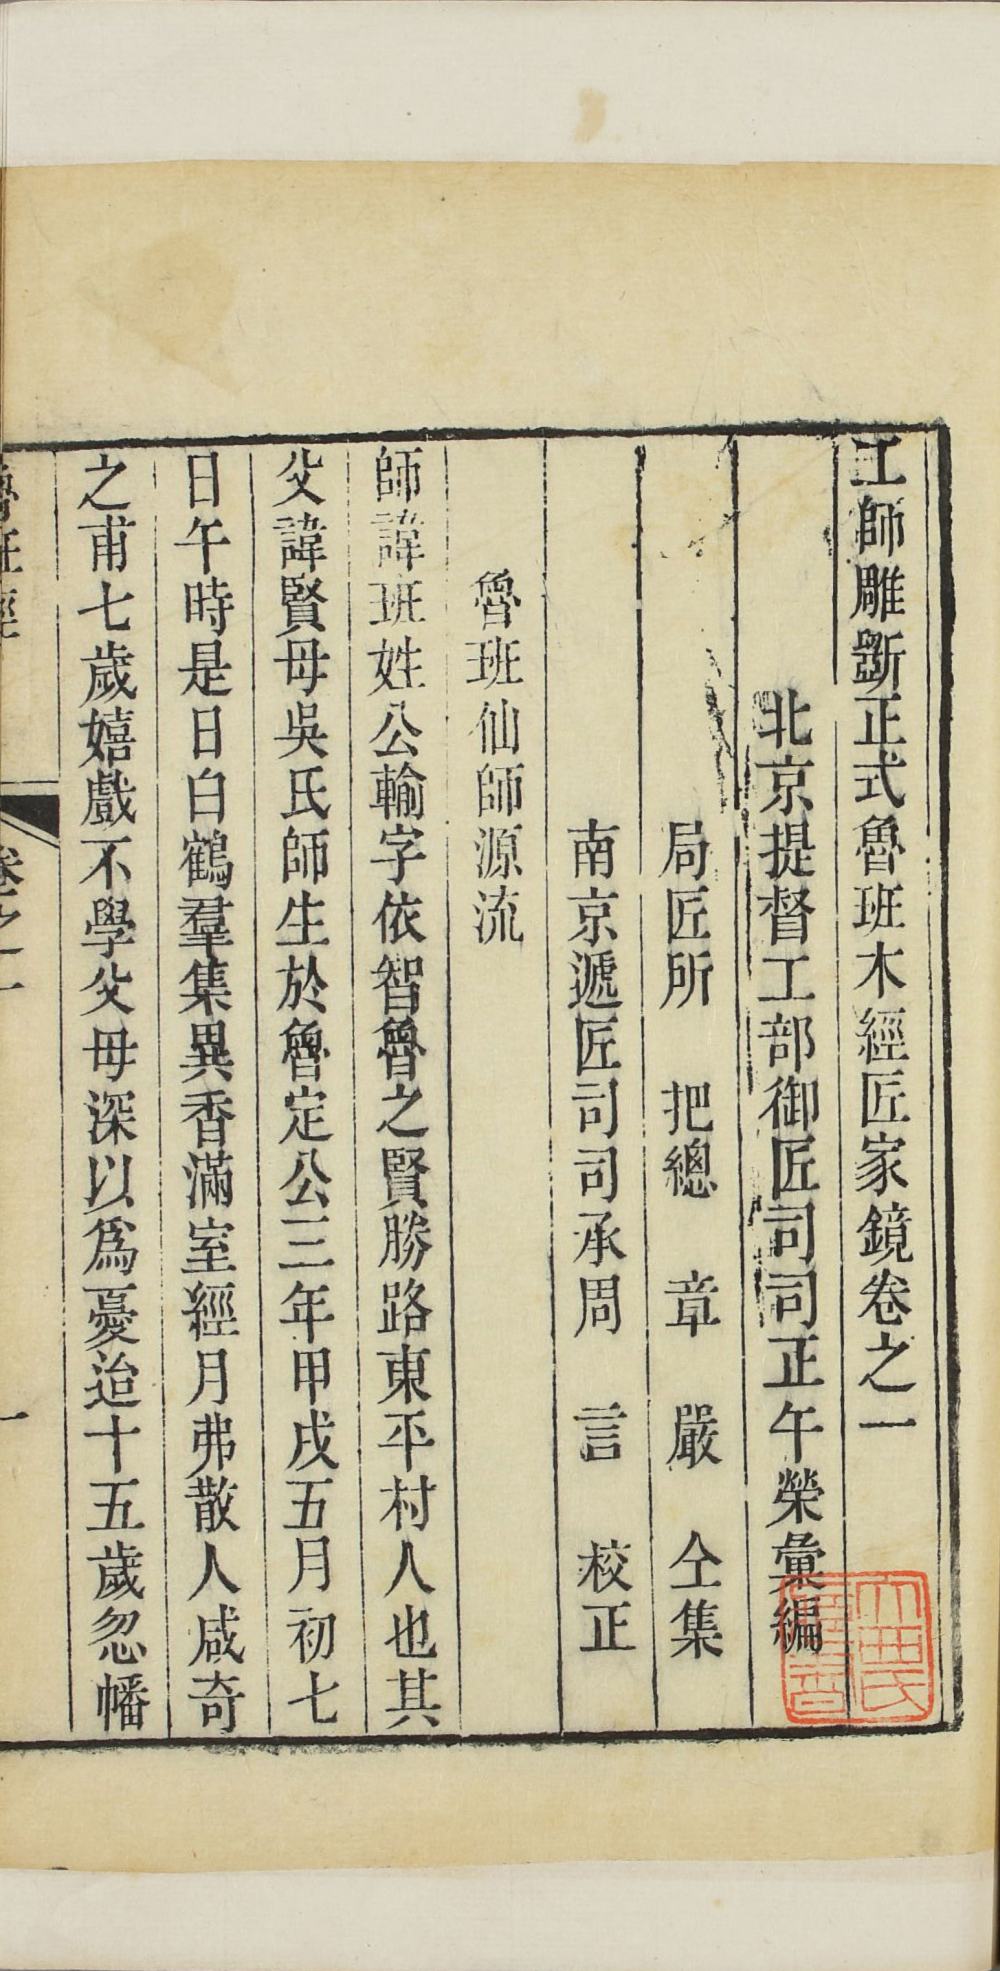 工師雕斲正式魯班木經匠家鏡卷之一
北京提督工部御匠司司正午榮彙編
局匠所　把總　章　嚴　仝集
南京遞匠司司承周　言　校正
魯班仙師源流
師諱班姓公輸字依智魯之賢勝路東平村人也其
父諱賢母吳氏師生於魯定公三年甲戌五月初七
日午時是日白鶴羣集異香滿室經月弗散人咸奇
之甫七歲嬉戲不學父母深以爲憂迨十五歲忽幡
魯班經　卷之一　一